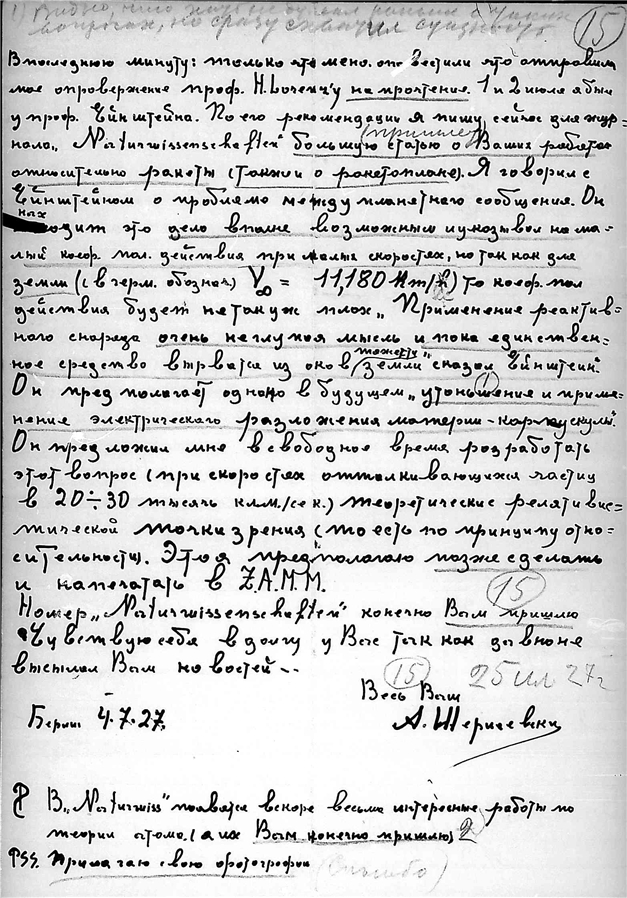 1) Видно, что
вопросах, но сразу схватил сущность
15
В последнюю минуту: только что мено опо вестили что отправили
мое опровержение проф. H. Lorenz'у на прочтение. 1 и 2 июля я был
у проф. Ейнштейна. По его рекомендации я пишу сейчас для жур-
нала „Naturwissenschaften" большую статью о Ваших работах
(пришлет)
относительно ракеты (также о ракетоплане). Я говорил с
Ейнштейном о проблеме междупланетного сообщения. Он
находит это дело вполне возможным и указывал на ма-
лый коеф. пол. действия при малых скоростях, но так как для
земли (в герм. обознач.) V∞ = 11,180 km/ то коеф. пол
действия будет не так уж плох „Применение реактив-
ного снаряда очень не глупая мысль и пока единствен-
ное средство вырватся из оков земли" сказал Ейнштейн.
тяжести
Он предполагает однако в будущем „утоньшение и приме-
(1)
нение электрического разложения материи - карпускулы".
Он предложил мне в свободное время розработать
этот вопрос (при скоростях отталкивающихся частиц
в 20÷30 тысяч клм./сек.) теоретические релятивис-
тической точки зрения (то есть по принципу отно-
сительности). Это я предполагаю позже сделать
и напечатать в Z.A.M.M.
15
Номер „Naturwissenschaften" конечно Вам пришлю
Чувствую себя в долгу у Вас так как давно не
высылал Вам новостей --
15 25 Ил 27г
Весь Ваш
Берлин 4.7.27. А. Шершевский
P В „Naturwiss" появятся вскоре весьма интересные работы по
теории атома. (а их Вам конечно пришлю) 2
PSS. Прилагаю свою фотографии (Спасибо)